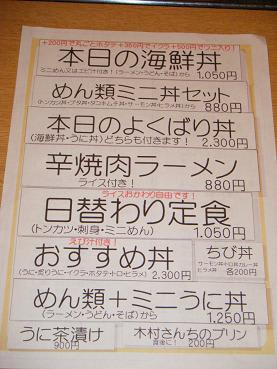 +200円で丸ごとホタテ+350円でイクラ+500円でウニ入り!
本日の海鮮丼
ミニめん又はエビ汁付き!(ラーメン・うどん・そば)から 1,050円
めん類ミニ丼セット
(トンカツ丼・ブタ丼・タンキムチ丼・サーモン丼・ヒラメ丼)から 880円
本日のよくばり丼
(海鮮丼・うに丼)どちらも付きます! 2,300円
辛焼肉ラーメン
ライス付き! 880円
ライスおかわり自由です!
日替わり定食
(トンカツ・刺身・ミニめん) 1,050円
えび汁付き!
おすすめ丼
(うに・炙りうに・イクラ・ホタテ・トロ・ヒラメ) 2,300円
ちび丼
サーモン丼・トロ丼・カレー丼
ヒラメ丼 各200円
めん類+ミニうに丼
(ラーメン・うどん・そば)から 1,250円
うに茶漬け
900円
木村さんちのプリン
食後に! 200円